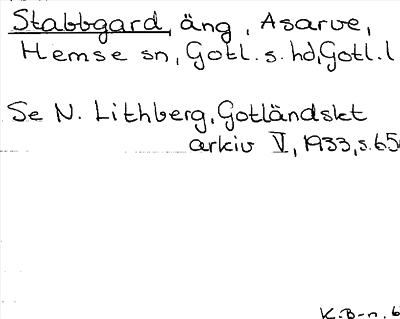 Stabbgard, äng, Asarve,
Hemse sn, Gotl. s. hd, Gotl. l
Se N. Lithberg, Gotländskt
arkiv V, 1933, s. 65
K. B-n. 6